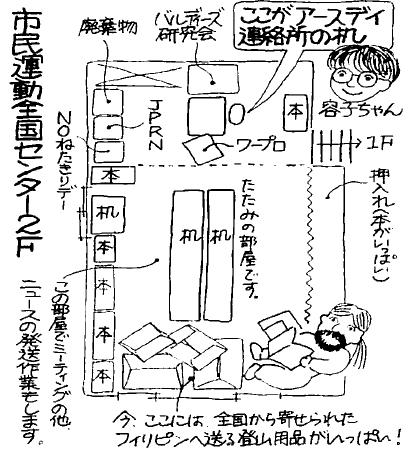 市民運動全国センター2F
廃棄物
バルディーズ
研究会
ここが アースデイ
連絡所の机
容子ちゃん
JPRN
NOねたきりデー
ワープロ
本
1F
本
机
本
本
本
本
机
机
たたみの部屋です。
押入れ(本がいっぱい)
この部屋でミーティングの他、
ニュースの発送作業もします。
今、ここには、全国から寄せられた
フィリピンへ送る登山用品がいっぱい!